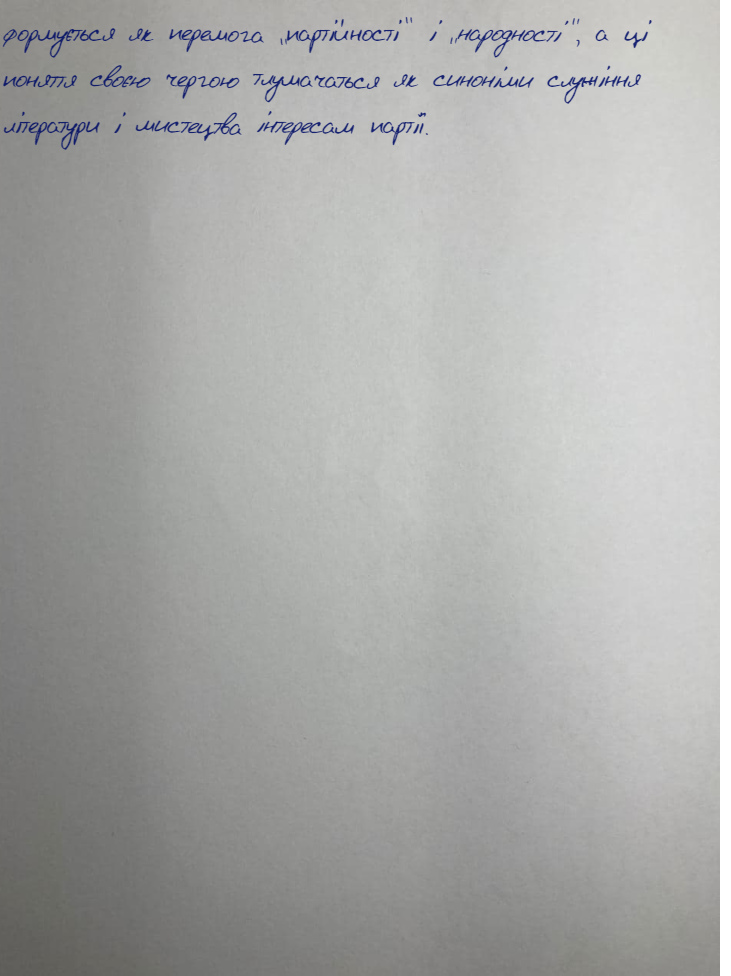 формується як перемога „партійності" і „народності", а ці
поняття своєю чергою тлумачаться як синоніми служіння
літератури і мистецтва інтересам партії.